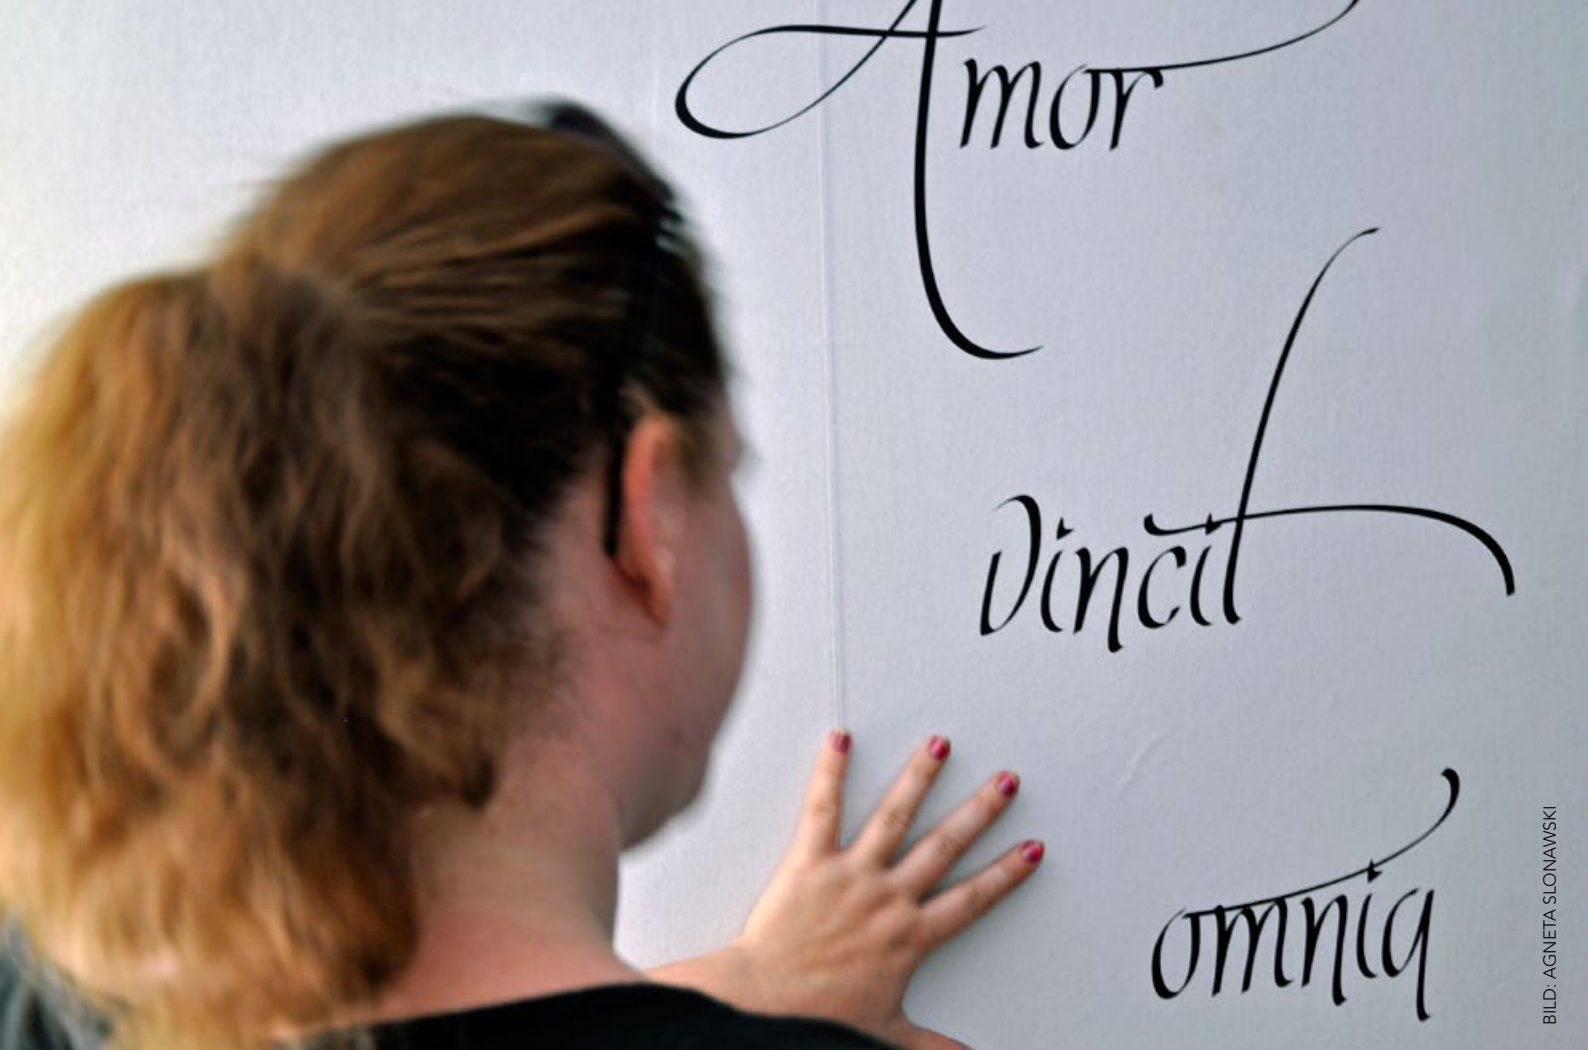 Amor
vincit
omnia
BILD: AGNETA SLONAWSKI